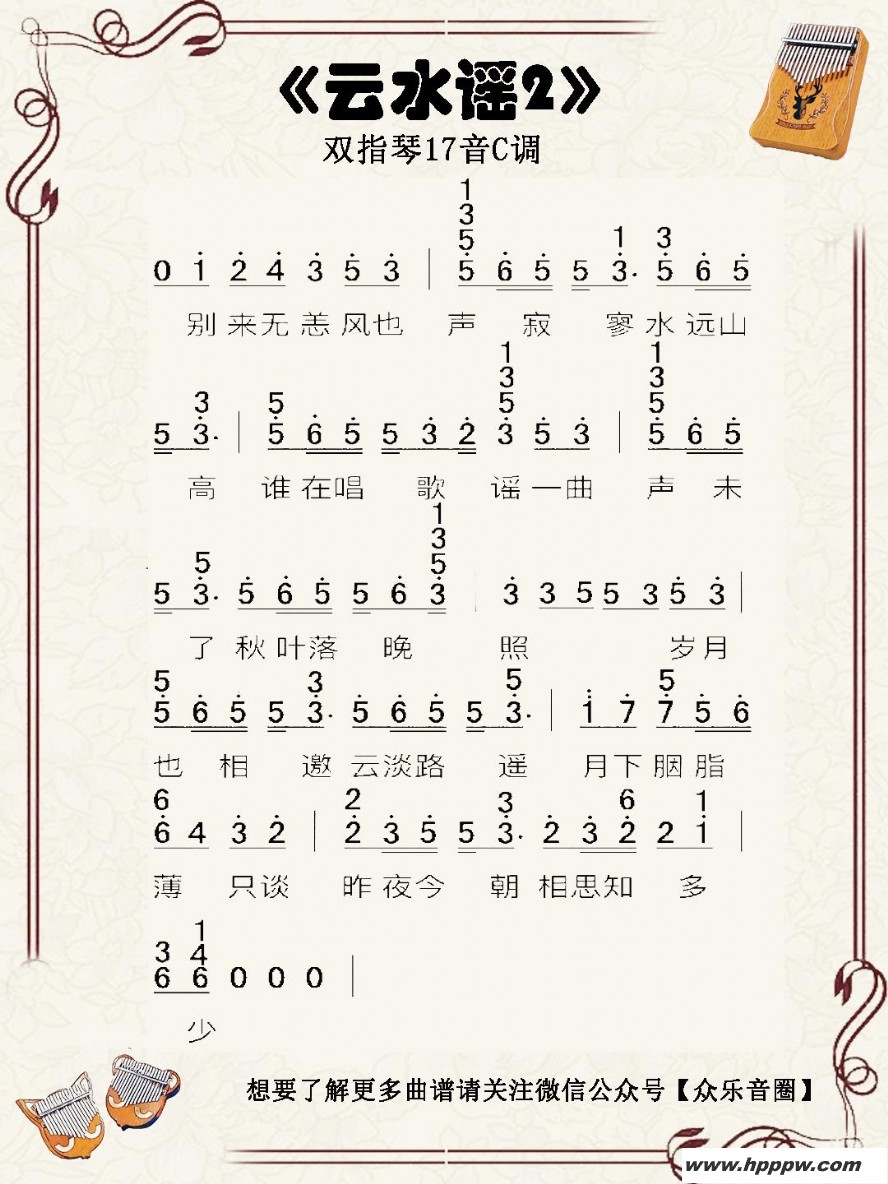 《云水谣2》
双指琴17音C调
1
3
5 1 3
0 1 2 4 3 5 3 | 5 6 5 5 3. 5 6 5
别来无恙风也 声 寂 寥水远山
1 1
3 3
3 5 5 5
5 3. | 5 6 5 5 3 2 3 5 3 | 5 6 5
高 谁在唱 歌 谣一曲 声 未
1
3
5 5
5 3. 5 6 5 5 6 3 | 3 3 5 5 3 5 3 |
了 秋叶落 晚 照 岁月
5 3 5 5
5 6 5 5 3. 5 6 5 5 3. | 1 7 7 5 6
也 相 邀 云淡路 遥 月下胭脂
6 2 3 6 1
6 4 3 2 | 2 3 5 5 3. 2 3 2 2 1 |
薄 只谈 昨夜今 朝 相思知 多
1
3 4
6 6 0 0 0 |
少
想要了解更多曲谱请关注微信公众号【众乐音圈】
www.hpppw.com